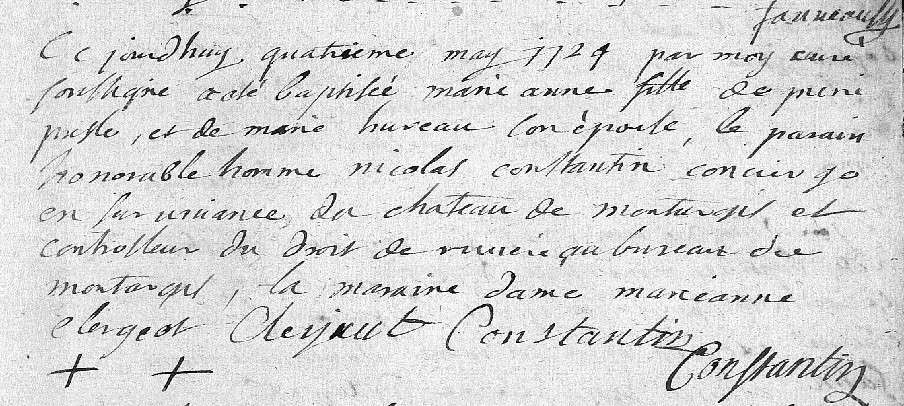 Ce jourdhuy quatrieme may 1724 par moy curé
soussigne a eté baptisée marie anne fille de pierre
presle, et de marie bureau son épouse, le parain
honorable homme nicolas constantin concierge
en survivance du chateau de montargis et
controlleur du droit de riviere au bureau dee
montargis, la maraine dame marieanne
clergeot Constantin
Constantin
+ +